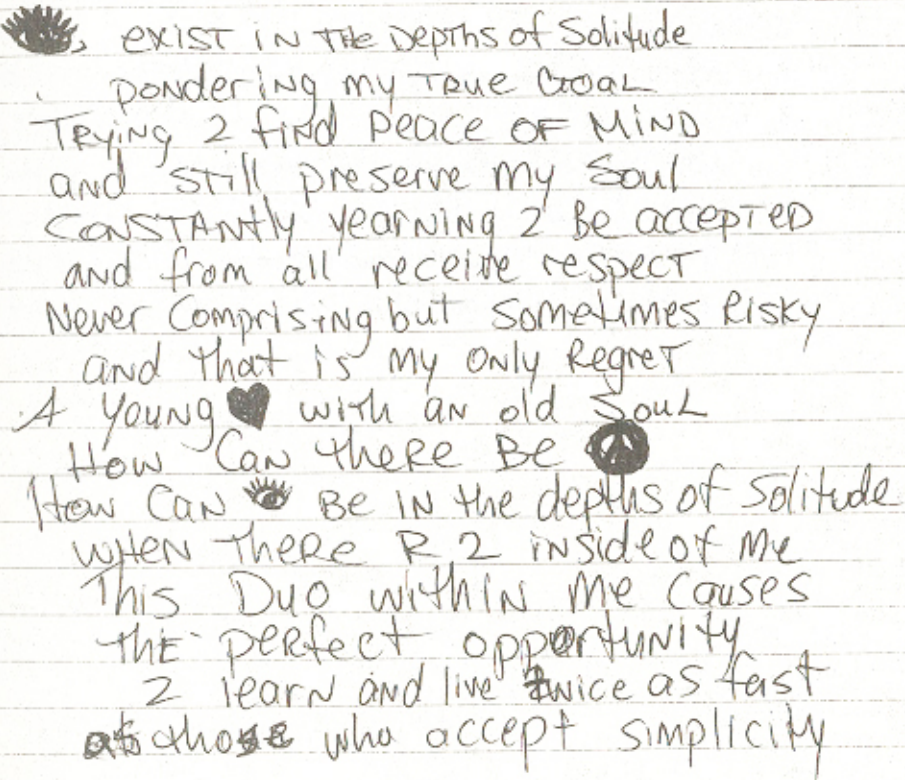 👁 exist in the Depths of Solitude
pondering my True Goal
Trying 2 find peace of Mind
and still preserve my Soul
Constantly yearning 2 Be accepted
and from all receive respect
Never Comprising but sometimes Risky
and that is my only Regret
A Young ♥ with an old Soul
How Can there Be ☮
How Can 👁 Be in the depths of Solitude
when there R 2 inside of Me
This Duo within me causes
the perfect opportunity
2 learn and live twice as fast
as those who accept simplicity